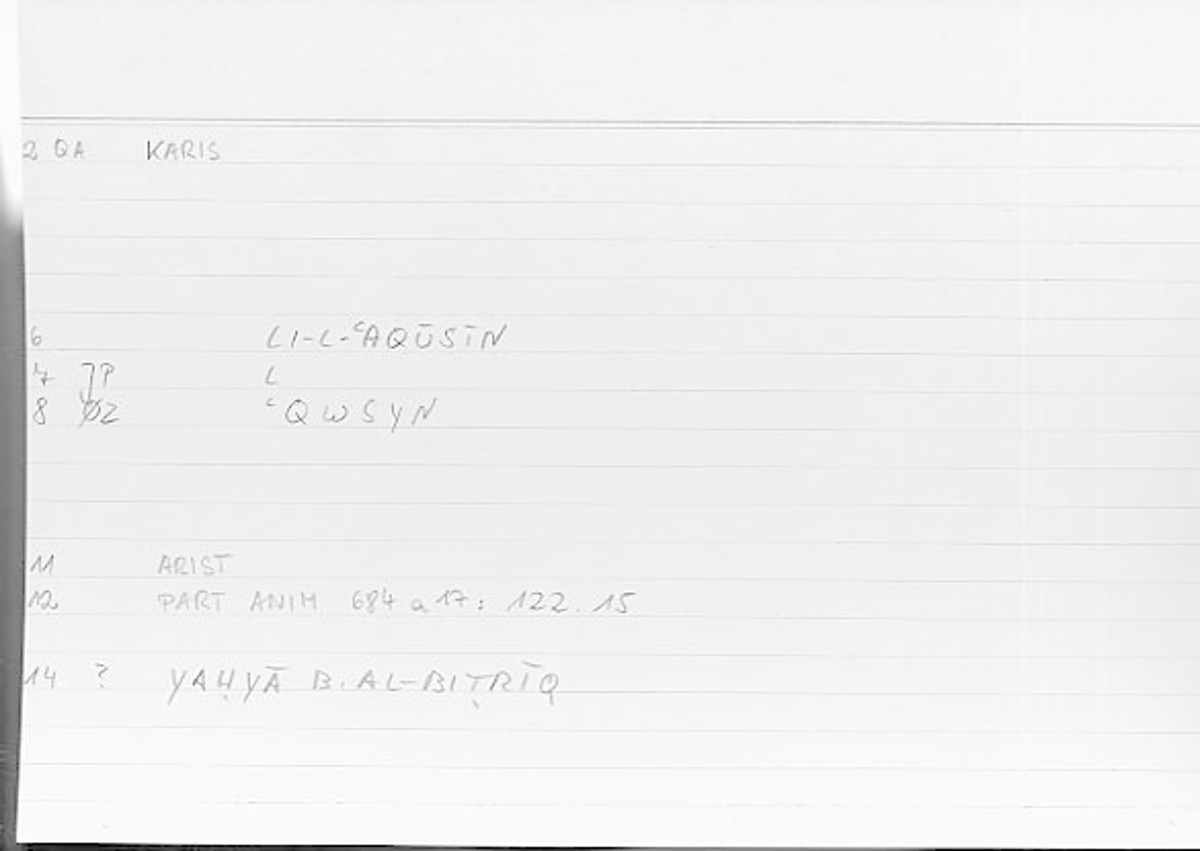 2 QA KARIS
6 LI-L-ʿAQŪSĪN
7 JP L
8 ØZ ʿQWSYN
11 ARIST
12 PART ANIM 684 a 17: 122.15
14 ? YAḤYĀ B. AL-BIṬRĪQ